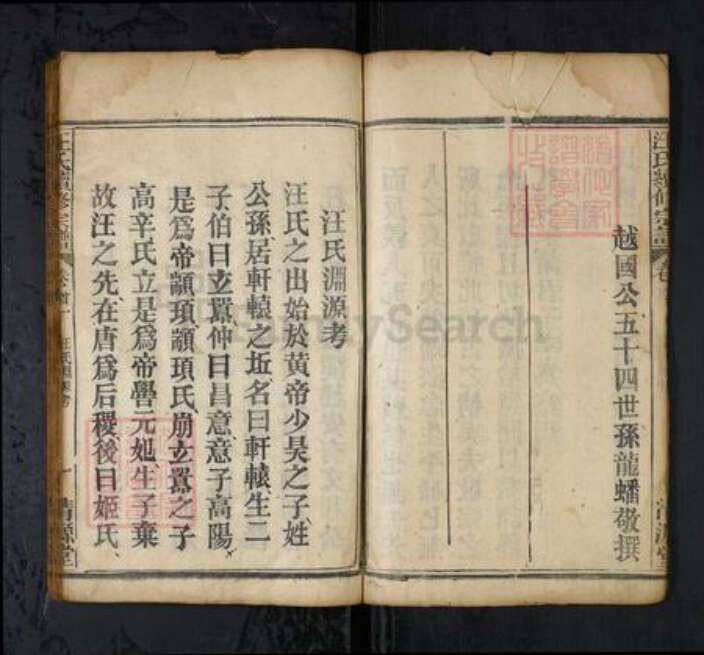 汪氏續修宗譜
越國公五十四世孫龍蟠敬撰
汪氏淵源考
汪氏之出始於黃帝少昊之子姓
公孫居軒轅之坵名曰軒轅生二
子伯曰玄囂仲曰昌意意子高陽
是爲帝顓頊顓頊氏崩玄囂之子
高辛氏立是爲帝嚳元妣生子棄
故汪之先在唐爲后稷後曰姬氏
汪氏續修宗譜
卷首一
汪氏淵源考
一
清源堂
FamilySearch